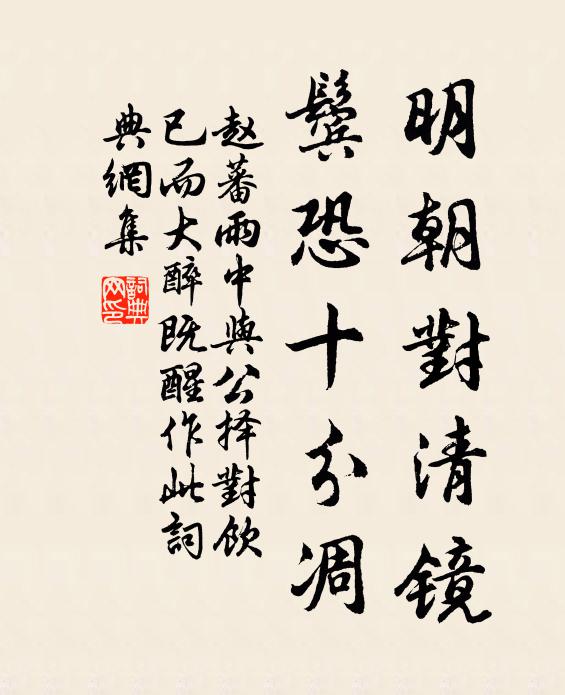 明朝對清镜
鬓恐十分凋
赵蕃雨中與公择對飲
已而大醉既醒作此詞
典網集
詞典網印